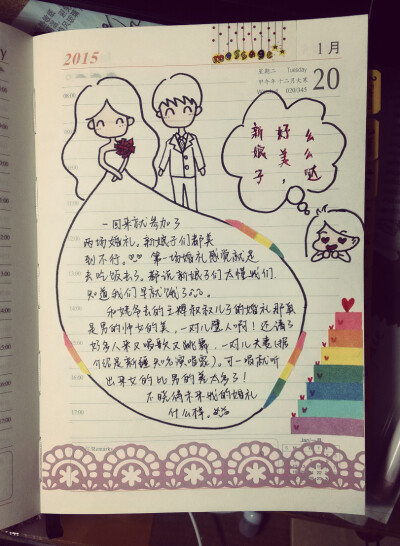 2015
1月
星期二 Tuesday
20
020/345
新娘子
好美
么么哒
一回来就参加了
两场婚礼。新娘子们都美
到不行。第一场婚礼感觉就是
去吃饭去了。都说新娘子们太懂我们，
知道我们早就饿了。
和妈年去的王姨叔叔儿子的婚礼那真
是男的帅女的美，一对儿璧人啊！还请了
好多人来又唱歌又跳舞，一对儿夫妻(据
介绍是新疆知名演唱家)。可一唱就听
出来女的比男的美太多了！
不晓得未来我的婚礼
什么样。